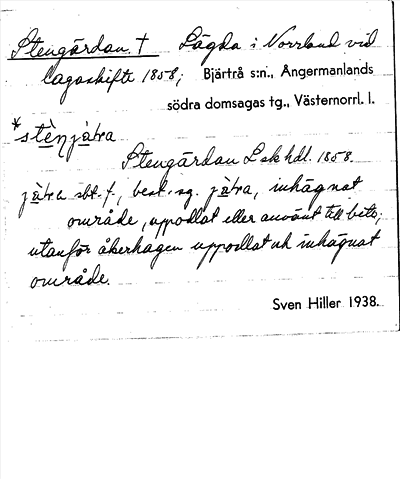 Stengärdan. † Lägda i Norrland vid
lagaskifte 1858; Bjärtrå s:n., Ångermanlands
södra domsagas tg., Västernorrl. l.
*stènjàra
Stengärdan Lskhdl. 1858.
jàra sbt. f., best. sg. jàra, inhägnat
område, uppodlat eller använt till bete;
utanför åkerhagen uppodlat ok inhägnat
område.
Sven Hiller 1938.